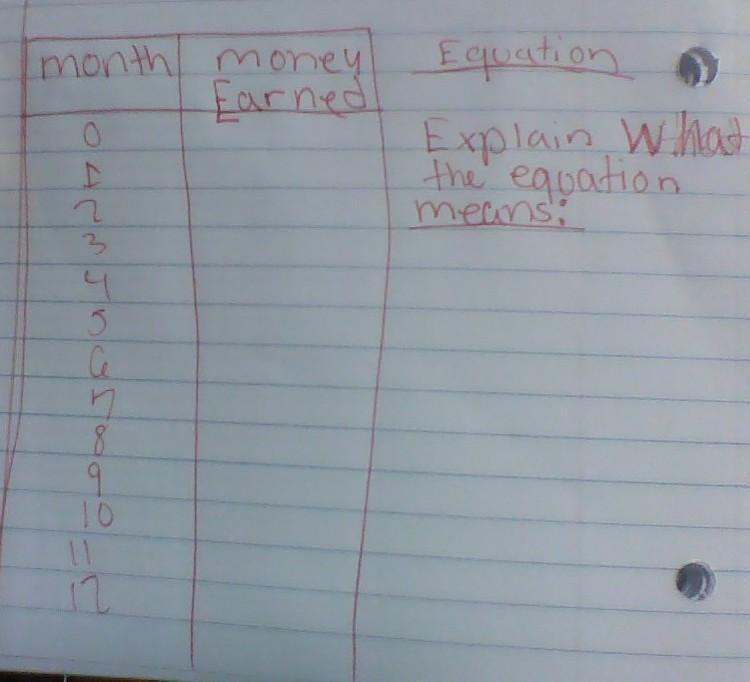 month money Earned Equation
0 Explain What
1 the equation
2 means:
3
4
5
6
7
8
9
10
11
12